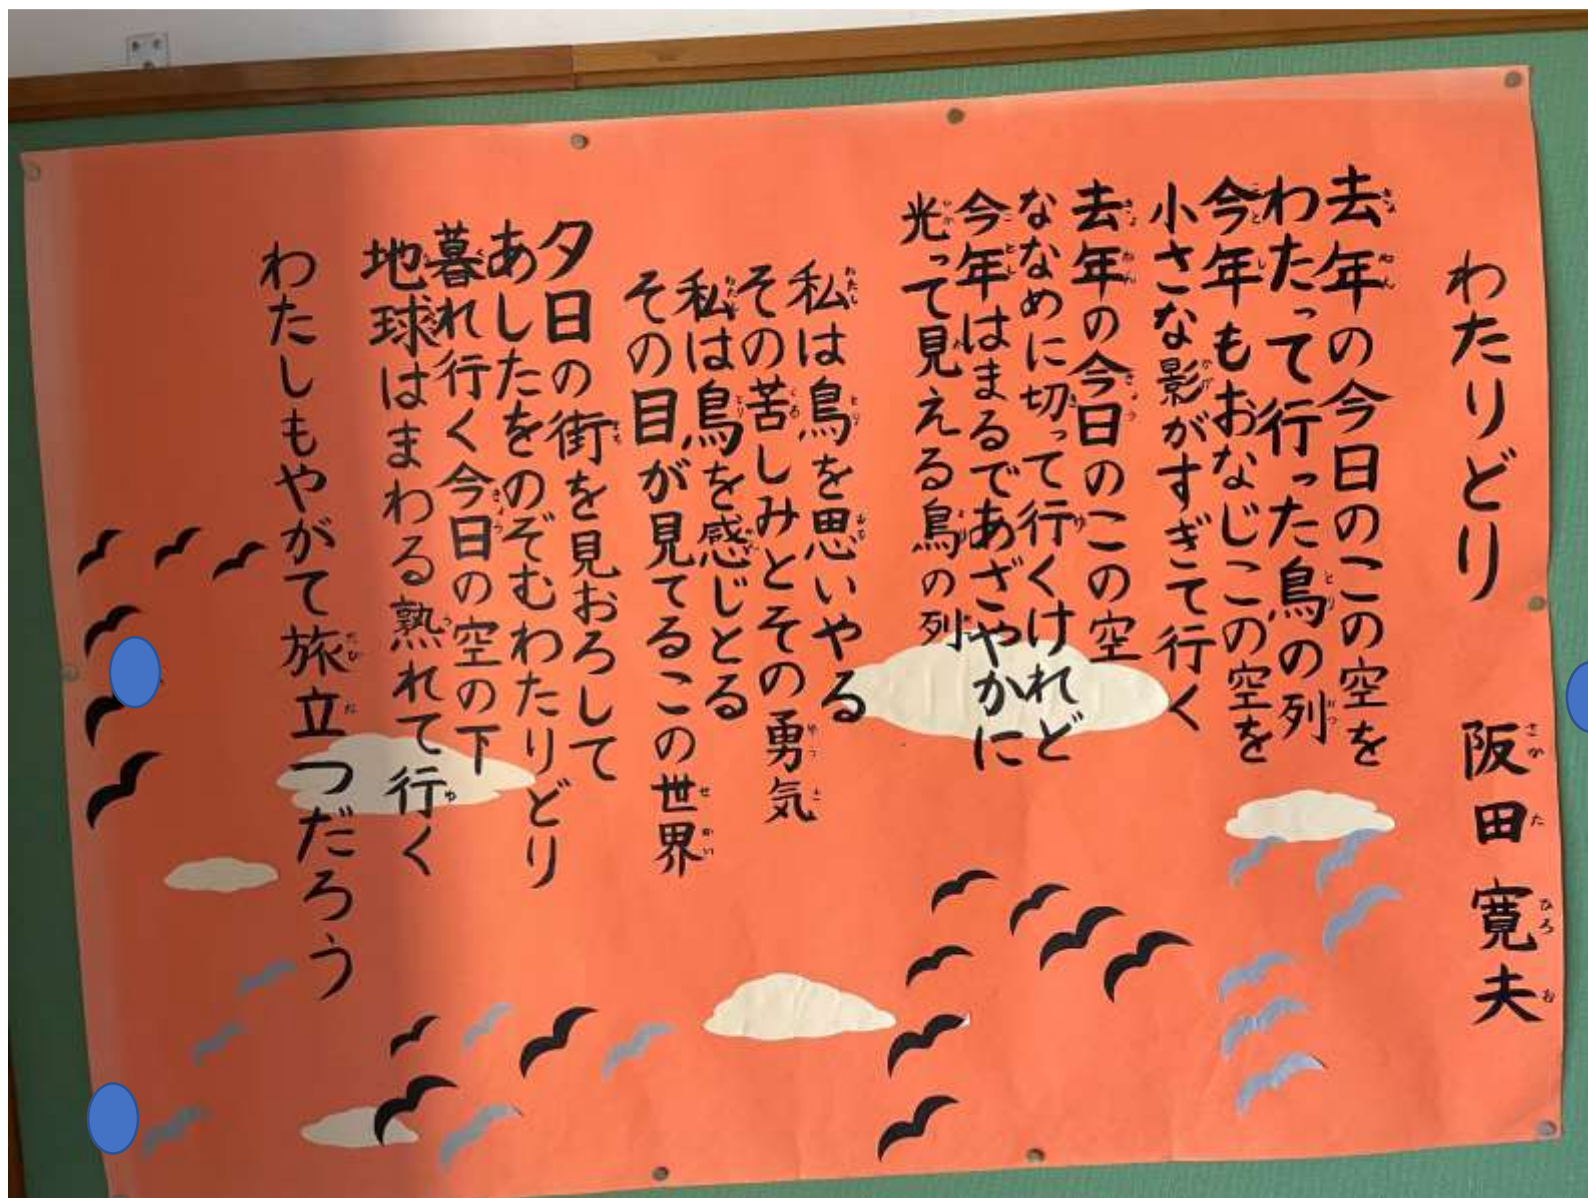 わたりどり　阪田寛夫
去年の今日のこの空を
わたって行った鳥の列
今年もおなじこの空を
小さな影がすぎて行く
去年の今日のこの空
ななめに切って行くけれど
今年はまるであざやかに
光って見える鳥の列
私は鳥を思いやる
その苦しみとその勇気
私は鳥を感じとる
その目が見てるこの世界
夕日の街を見おろして
あしたをのぞむわたりどり
暮れ行く今日の空の下
地球はまわる熟れて行く
わたしもやがて旅立つだろう